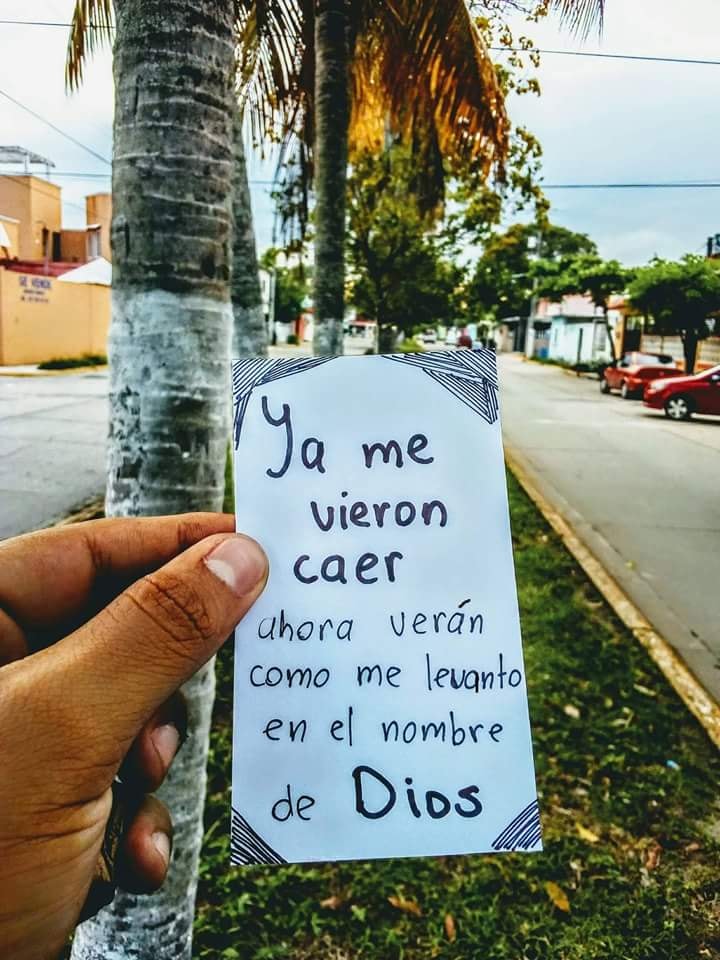 SE VENDE
Ya me
vieron
caer
ahora verán
como me levanto
en el nombre
de Dios